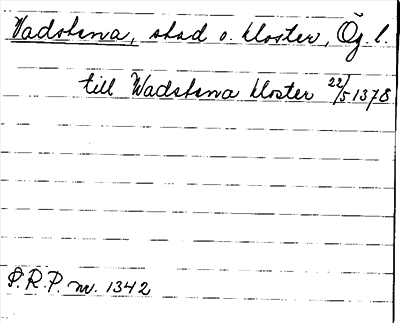 Vadstena, stad o. kloster, Ög. l.
till Wadstena kloster 22/5 1378
P.R.P. nr. 1342